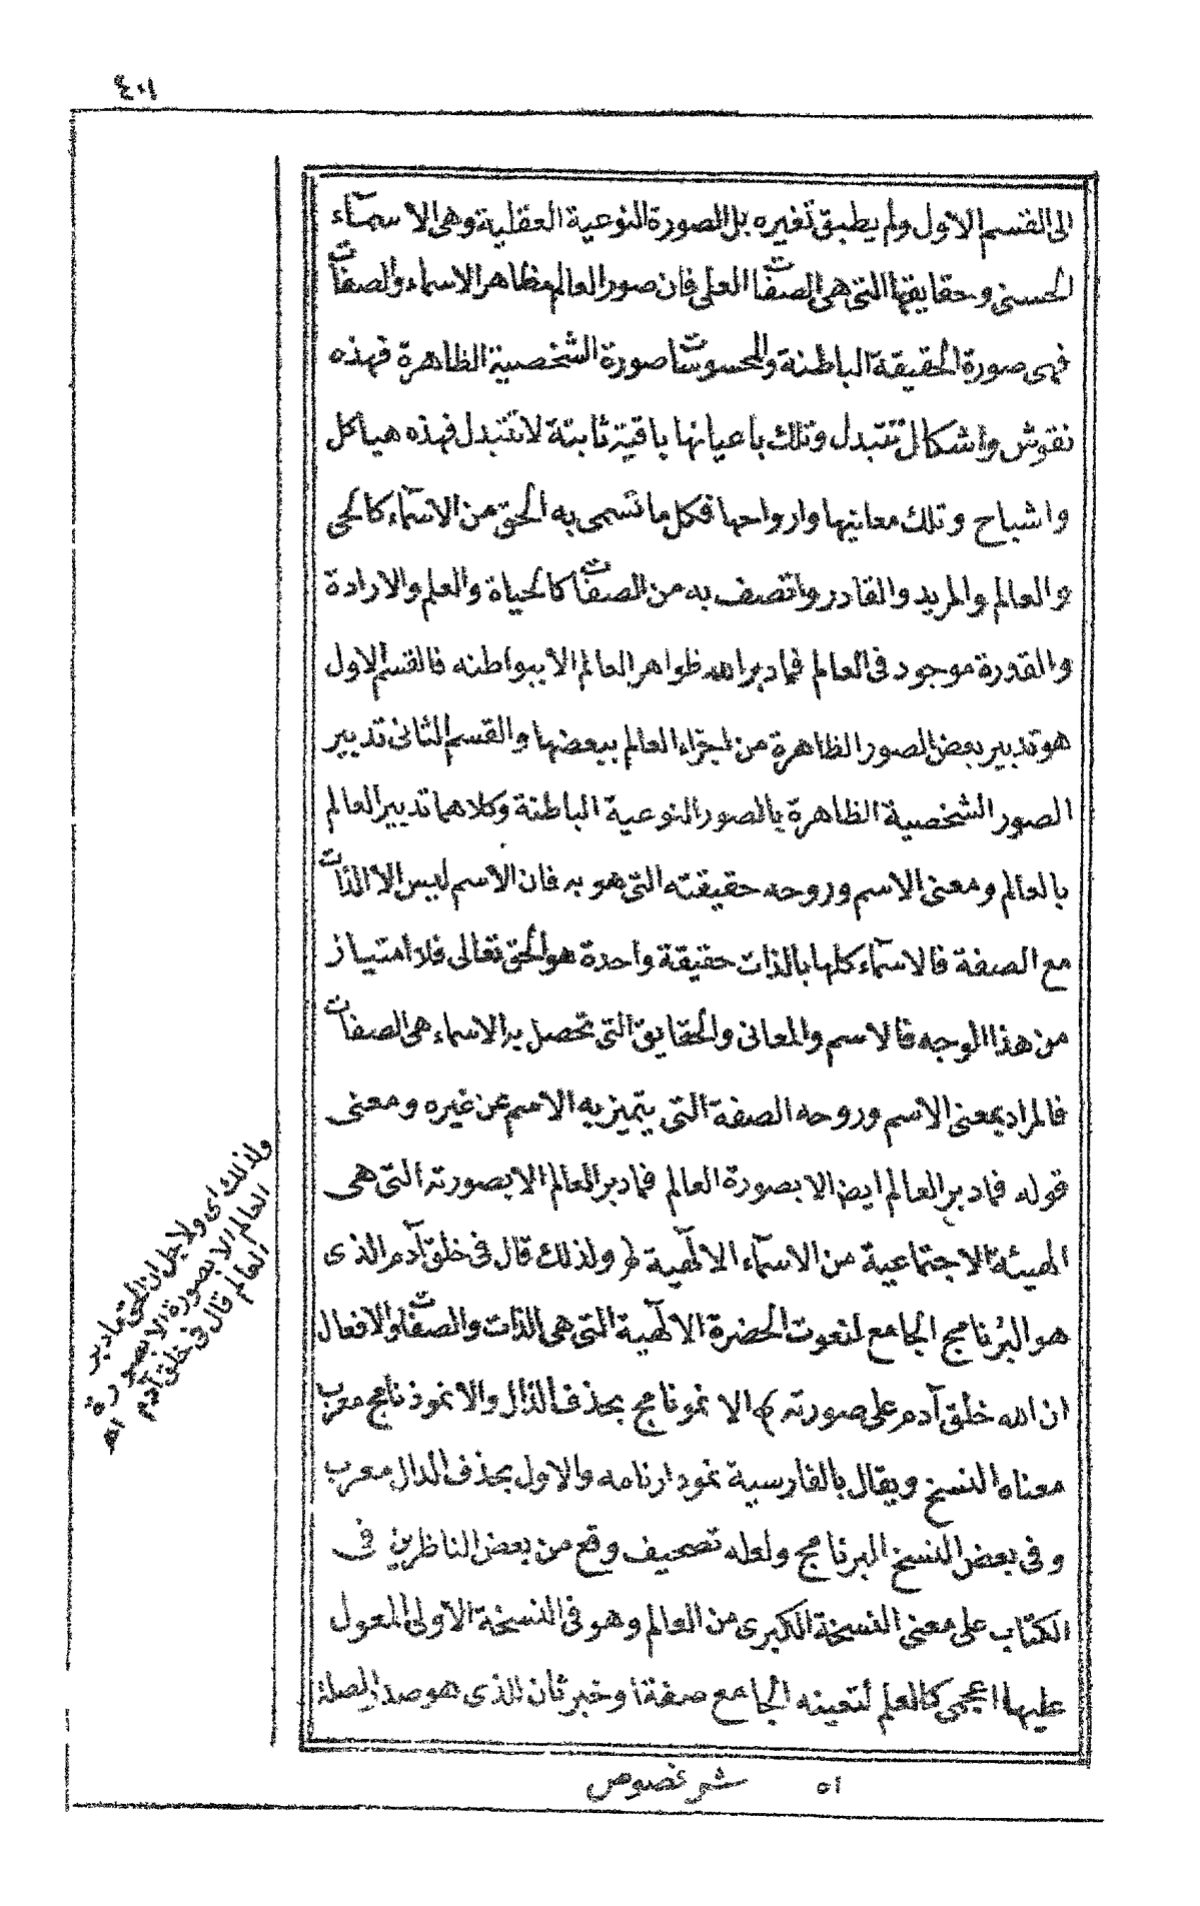 ٤٠١
الى القسم الاول ولم يطبق تغيره بل الصورة النوعية العقلية وهى الاسمآء
الحسنى وحقايقها التى هى الصفات العلى فان صور العالم مظاهر الاسماء والصفات
فهى صورة الحقيقة الباطنة والمحسوسات صورة الشخصية الظاهرة فهذه
نقوش واشكال تتبدل وتلك باعيانها باقية ثابتة لا تتبدل فهذه هياكل
واشباح وتلك معانيها وارواحها فكل ما تسمى به الحق من الاسمآء كالحى
والعالم والمريد والقادر واتصف به من الصفات كالحياة والعلم والارادة
والقدرة موجود فى العالم فما دبر الله ظواهر العالم الا ببواطنه فالقسم الاول
هو تدبير بعض الصور الظاهرة من اجزاء العالم ببعضها والقسم الثانى تدبير
الصور الشخصية الظاهرة بالصور النوعية الباطنة وكلاهما تدبير العالم
بالعالم ومعنى الاسم وروحه حقيقته التى هو به فان الاسم ليس الا الذات
مع الصفة فالاسمآء كلها بالذات حقيقة واحدة هو الحق تعالى فلا امتياز
من هذا الوجه فالاسم والمعانى والحقايق التى تحصل بها الاسماء هى الصفات
فالمراد بمعنى الاسم وروحه الصفة التى يتميز به الاسم عن غيره ومعنى
قوله فما دبر العالم ايضا الا بصورة العالم فما دبر العالم الا بصورته التى هى
الهيئة الاجتماعية من الاسمآء الالهية ﴿ ولذلك قال فى خلق آدم الذى
هو البرنامج الجامع لنعوت الحضرة الالهية التى هى الذات والصفات والافعال
ان الله خلق آدم على صورته ﴾ الانمونامج بحذف الذال والانموذنامج معرب
معناه النسخ ويقال بالفارسية نمودارنامه والاول بحذف الدال معرب
وفى بعض النسخ البرنامج ولعله تصحيف وقع من بعض الناظرين فى
الكتاب على معنى النسخة الكبرى من العالم وهو فى النسخة الاولى المعول
عليها اعجمى كالعلم لتعينه الجامع صفة او خبر ثان الذى هو صدر الصلة
ولذلك اى ولاجل ان الحق ما دبر
العالم الا بصورة الا بصورة
العالم قال فى خلق آدم اه
٥١ شرح فصوص